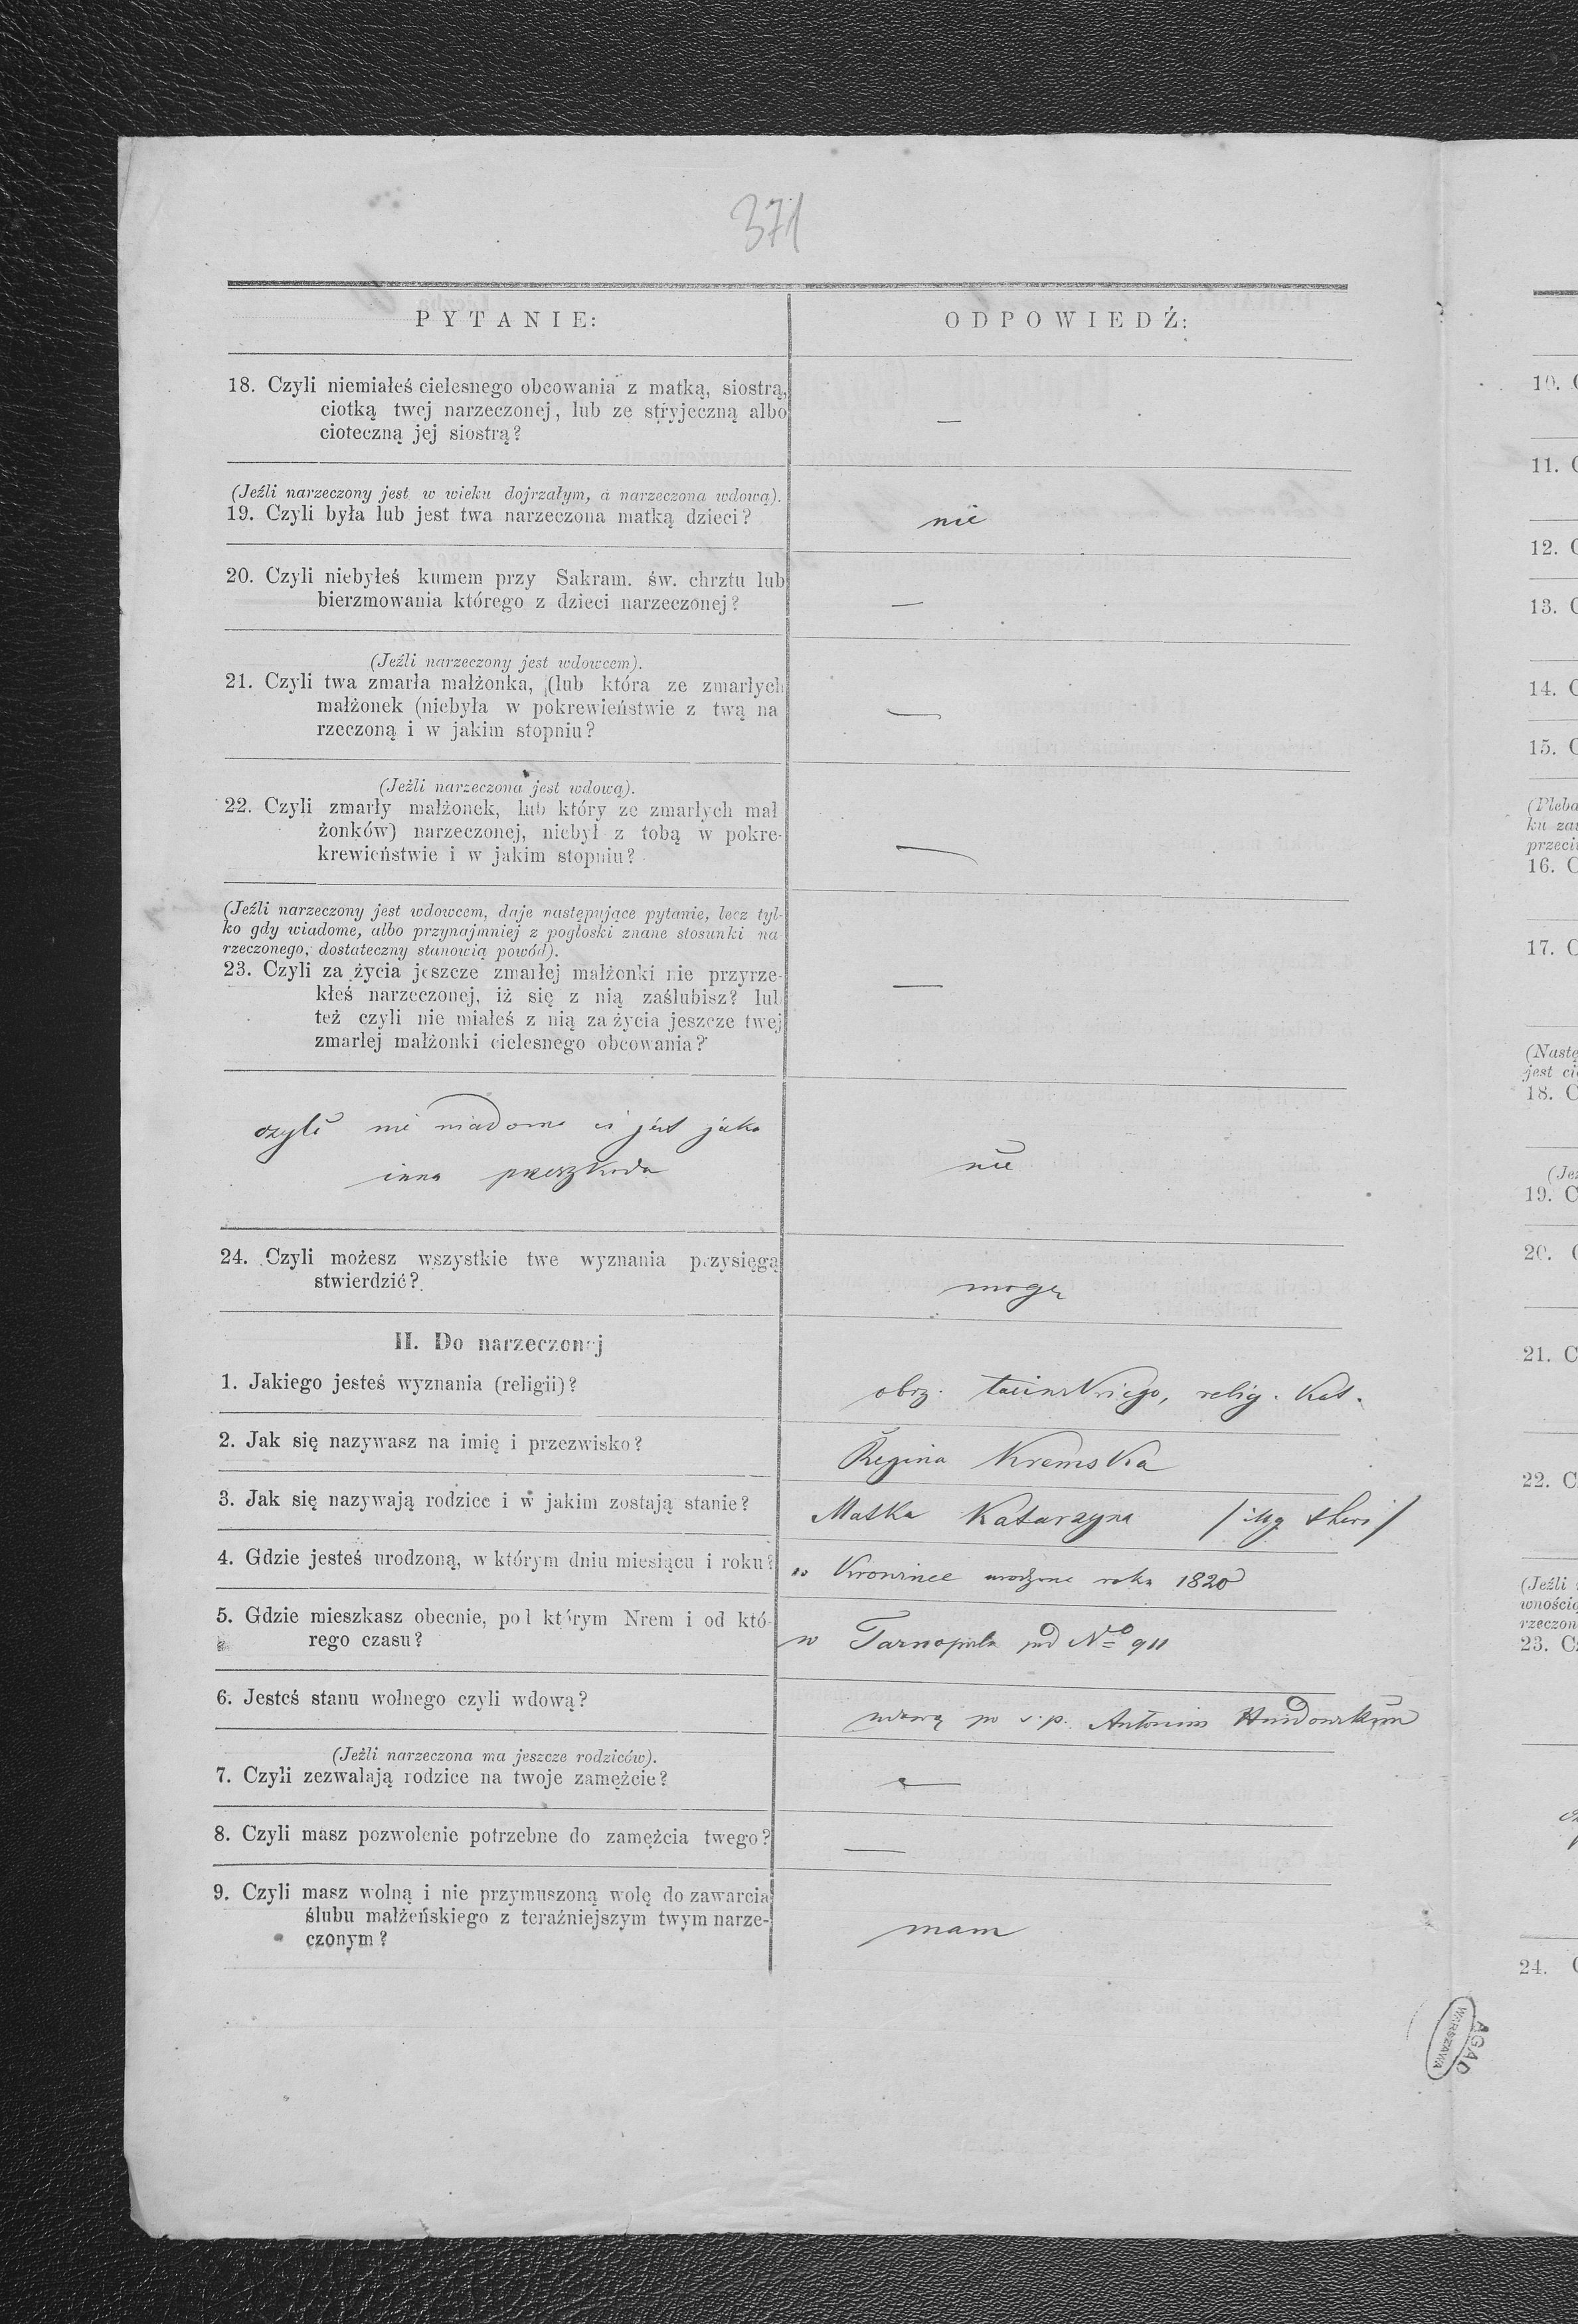 371
PYTANIE:
ODPOWIEDŹ:
18. Czyli niemiałeś cielesnego obcowania z matką, siostrą,
ciotką twej narzeczonej, lub ze stryjeczną albo
cioteczną jej siostrą?
—
(Jeźli narzeczony jest w wieku dojrzałym, a narzeczona wdową).
19. Czyli była lub jest twa narzeczona matką dzieci?
nie
20. Czyli niebyłeś kumem przy Sakram. św. chrztu lub
bierzmowania którego z dzieci narzeczonej?
—
(Jeźli narzeczony jest wdowcem).
21. Czyli twa zmarła małżonka, (lub która ze zmarłych
małżonek (niebyła w pokrewieństwie z twą na
rzeczoną i w jakim stopniu?
—
(Jeźli narzeczona jest wdową).
22. Czyli zmarły małżonek, lub który ze zmarłych mał
żonków) narzeczonej, niebył z tobą w pokre-
krewieństwie i w jakim stopniu?
—
(Jeźli narzeczony jest wdowcem, daje następujące pytanie, lecz tyl-
ko gdy wiadome, albo przynajmniej z pogłoski znane stosunki na-
rzeczonego, dostateczny stanowią powód).
23. Czyli za życia jeszcze zmarłej małżonki nie przyrze-
kłeś narzeczonej, iż się z nią zaślubisz? lub
też czyli nie miałeś z nią za życia jeszcze twej
zmarłej małżonki cielesnego obcowania?
—
czyli nie wiadome ci jest jaka
inna przeszkoda
nie
24. Czyli możesz wszystkie twe wyznania przysięgą
stwierdzić?
mogę
II. Do narzeczonej
1. Jakiego jesteś wyznania (religii)?
obrz. łacinskiego, relig. Kat.
2. Jak się nazywasz na imię i przezwisko?
Regina Kremska
3. Jak się nazywają rodzice i w jakim zostają stanie?
Matka Katarzyna
4. Gdzie jesteś urodzoną, w którym dniu miesiącu i roku?
w urodzona roku 1820
5. Gdzie mieszkasz obecnie, pod którym Nrem i od któ-
rego czasu?
w Tarnopolu pod No 911
6. Jesteś stanu wolnego czyli wdową?
wdową po ś.p. Antonim
(Jeźli narzeczona ma jeszcze rodziców).
7. Czyli zezwalają rodzice na twoje zamężcie?
—
8. Czyli masz pozwolenie potrzebne do zamężcia twego?
—
9. Czyli masz wolną i nie przymuszoną wolę do zawarcia
ślubu małżeńskiego z teraźniejszym twym narze-
czonym?
mam
AGAD
WARSZAWA
10. C
11. C
12. C
13. C
14. C
15. C
(Pleba
ku za
przeci
16. C
17. C
(Nastę
jest ci
18. C
(Je
19. C
20. C
21. C
22. C
(Jeźli
wnością
rzeczon
23. C
24. C